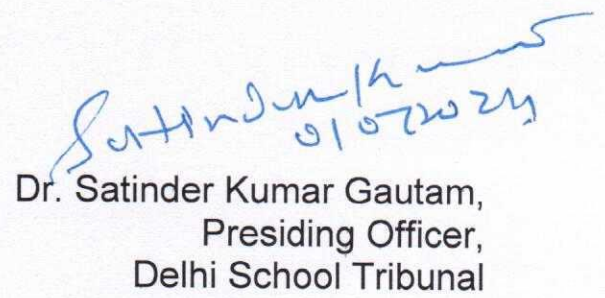 Satinder Kumar
01072024
Dr. Satinder Kumar Gautam,
Presiding Officer,
Delhi School Tribunal